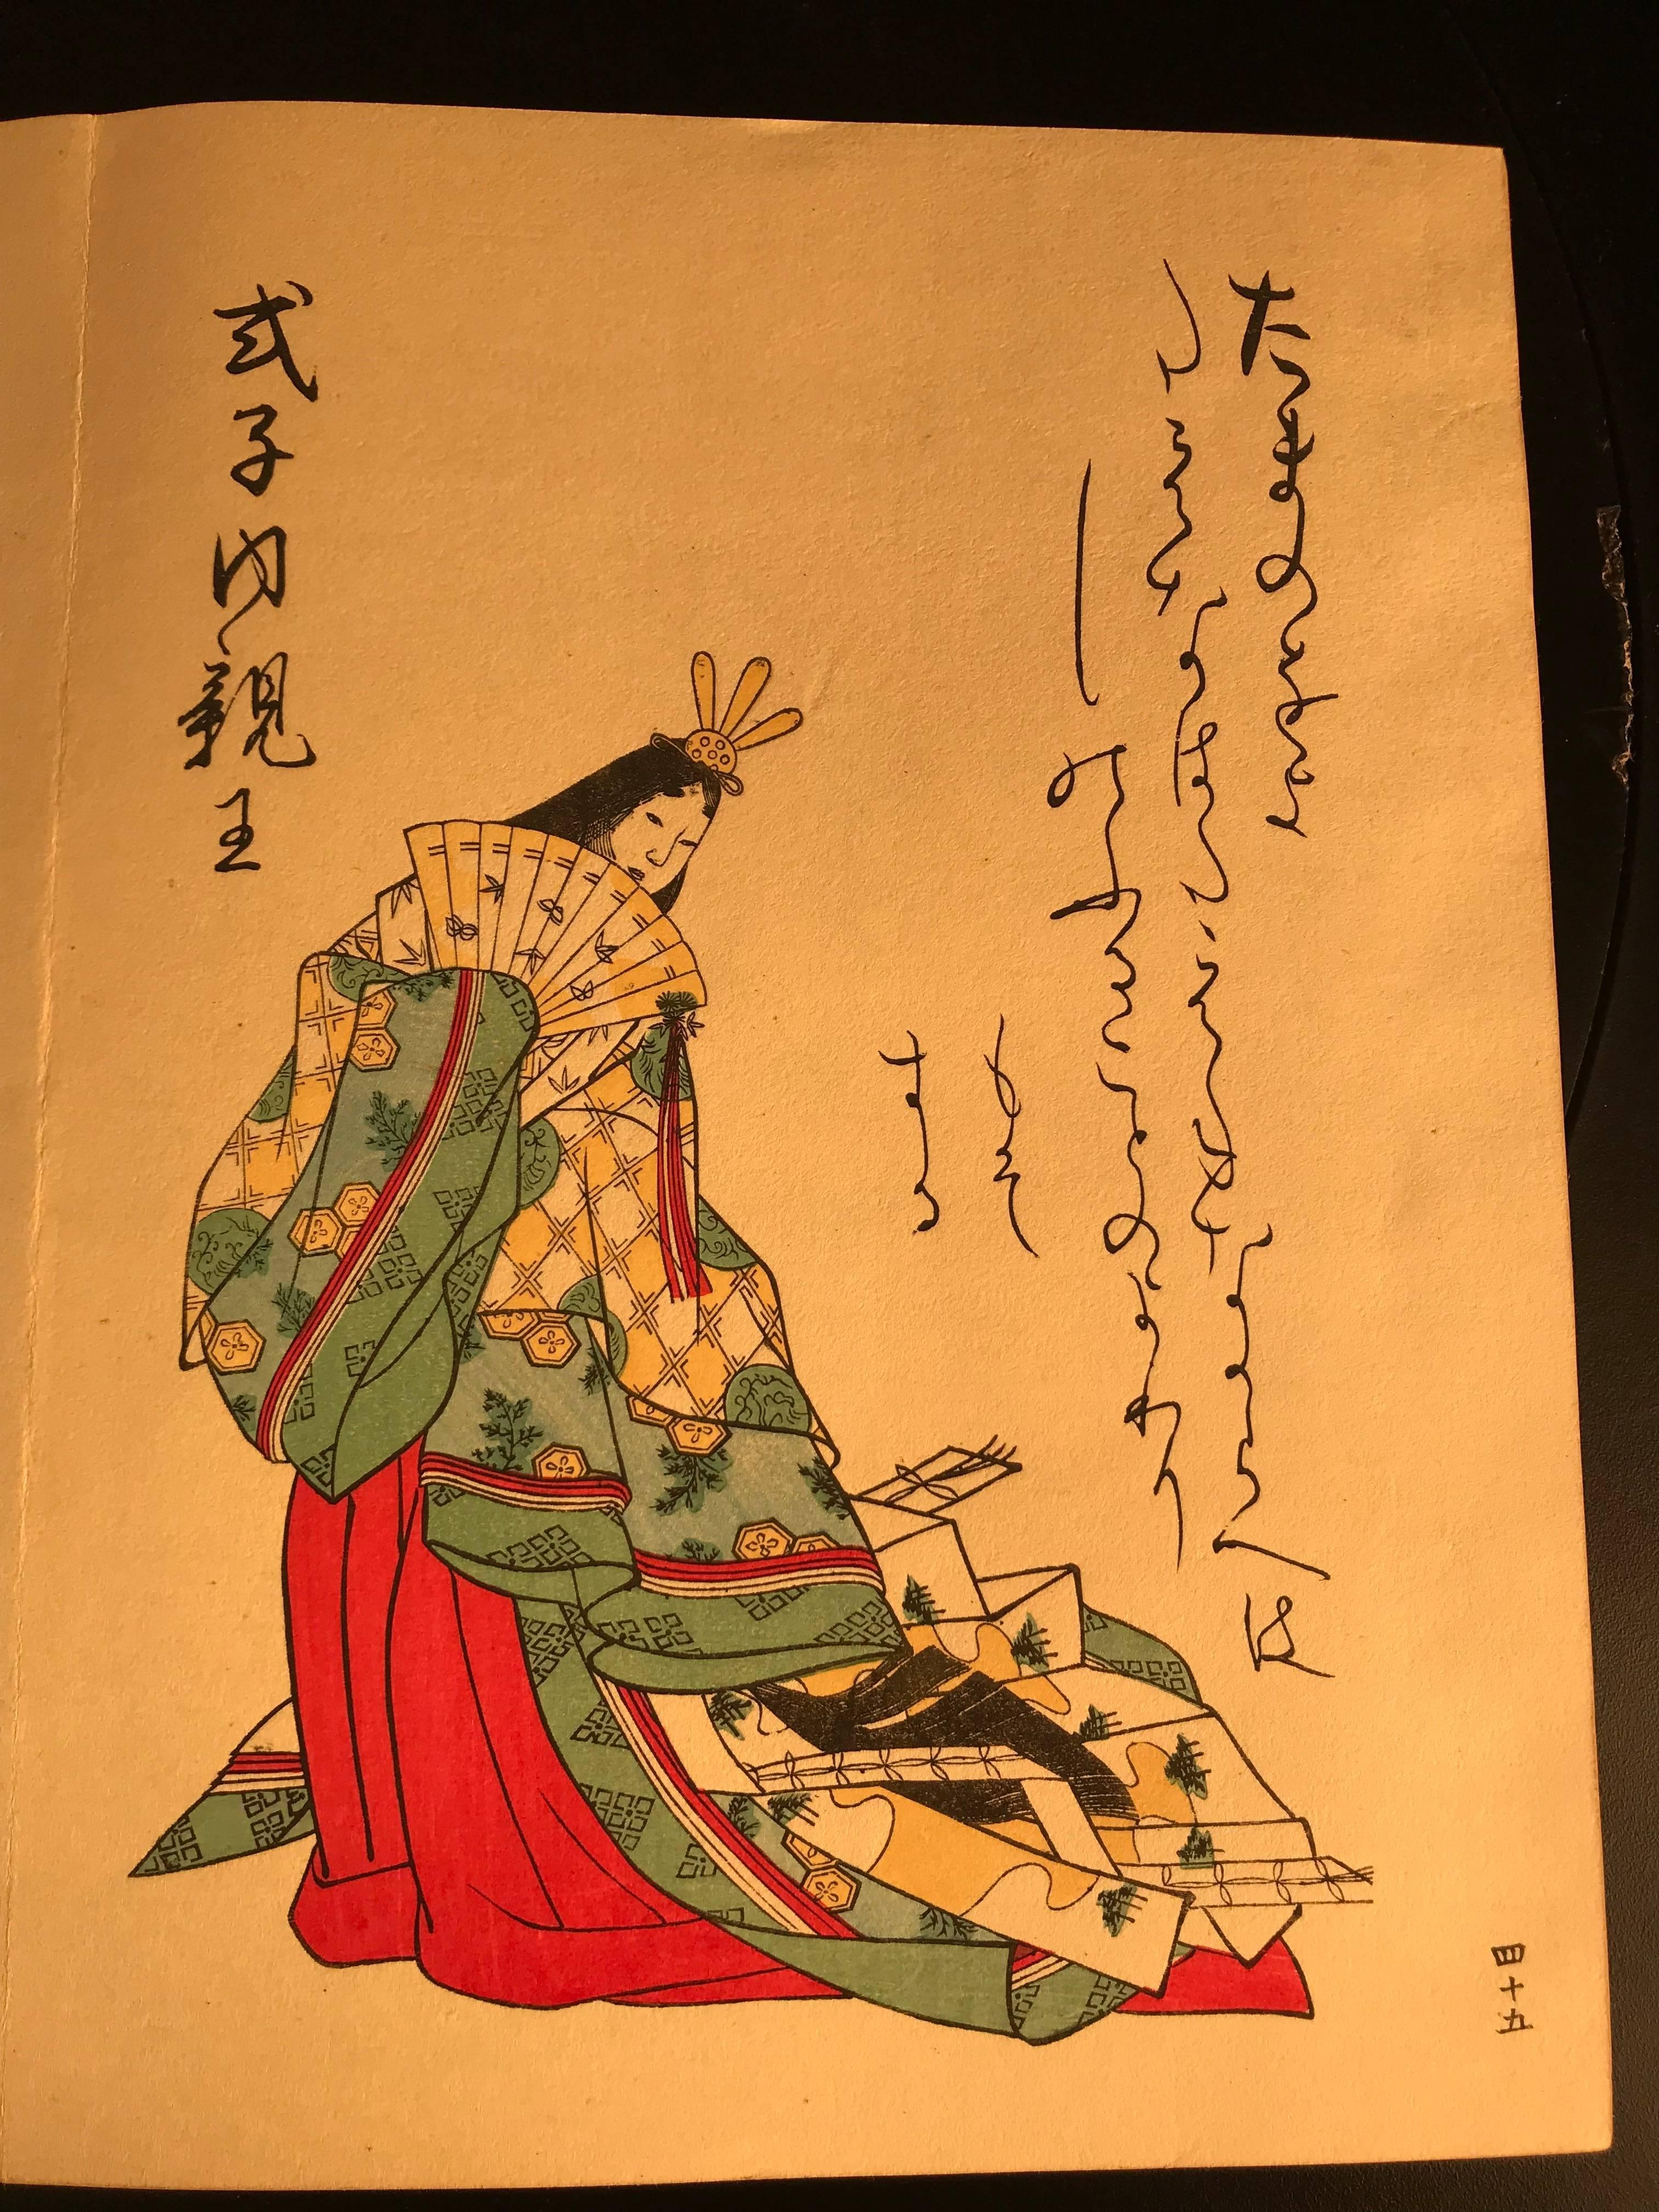 たまのをよ
たえなはたえねなからへは
しのふることのよわり
もそ
する
式子内親王
四十五